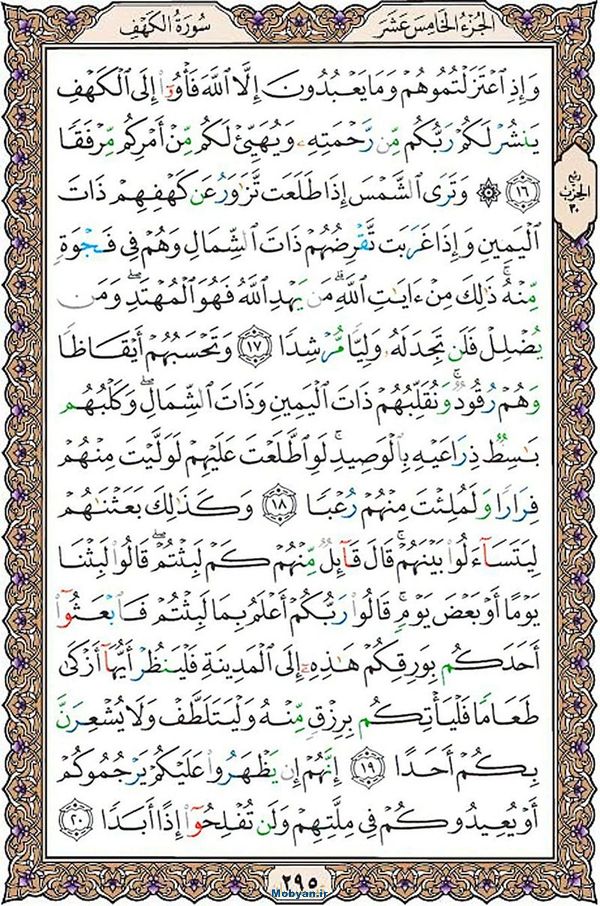 الجزء الخامس عشر
سورة الكهف
وَإِذِ ٱعۡتَزَلۡتُمُوهُمۡ وَمَا يَعۡبُدُونَ إِلَّا ٱللَّهَ فَأۡوُۥٓاْ إِلَى ٱلۡكَهۡفِ
يَنشُرۡ لَكُمۡ رَبُّكُم مِّن رَّحۡمَتِهِۦ وَيُهَيِّئۡ لَكُم مِّنۡ أَمۡرِكُم مِّرۡفَقٗا
ربع
الحزب
٣٠
١٦ ۞ وَتَرَى ٱلشَّمۡسَ إِذَا طَلَعَت تَّزَٰوَرُ عَن كَهۡفِهِمۡ ذَاتَ
ٱلۡيَمِينِ وَإِذَا غَرَبَت تَّقۡرِضُهُمۡ ذَاتَ ٱلشِّمَالِ وَهُمۡ فِي فَجۡوَةٖ
مِّنۡهُۚ ذَٰلِكَ مِنۡ ءَايَٰتِ ٱللَّهِۗ مَن يَهۡدِ ٱللَّهُ فَهُوَ ٱلۡمُهۡتَدِۖ وَمَن
يُضۡلِلۡ فَلَن تَجِدَ لَهُۥ وَلِيّٗا مُّرۡشِدٗا ١٧ وَتَحۡسَبُهُمۡ أَيۡقَاظٗا
وَهُمۡ رُقُودٞۚ وَنُقَلِّبُهُمۡ ذَاتَ ٱلۡيَمِينِ وَذَاتَ ٱلشِّمَالِۖ وَكَلۡبُهُم
بَٰسِطٞ ذِرَاعَيۡهِ بِٱلۡوَصِيدِۚ لَوِ ٱطَّلَعۡتَ عَلَيۡهِمۡ لَوَلَّيۡتَ مِنۡهُمۡ
فِرَارٗا وَلَمُلِئۡتَ مِنۡهُمۡ رُعۡبٗا ١٨ وَكَذَٰلِكَ بَعَثۡنَٰهُمۡ
لِيَتَسَآءَلُواْ بَيۡنَهُمۡۚ قَالَ قَآئِلٞ مِّنۡهُمۡ كَمۡ لَبِثۡتُمۡۖ قَالُواْ لَبِثۡنَا
يَوۡمًا أَوۡ بَعۡضَ يَوۡمٖۚ قَالُواْ رَبُّكُمۡ أَعۡلَمُ بِمَا لَبِثۡتُمۡ فَٱبۡعَثُوٓاْ
أَحَدَكُم بِوَرِقِكُمۡ هَٰذِهِۦٓ إِلَى ٱلۡمَدِينَةِ فَلۡيَنظُرۡ أَيُّهَآ أَزۡكَىٰ
طَعَامٗا فَلۡيَأۡتِكُم بِرِزۡقٖ مِّنۡهُ وَلۡيَتَلَطَّفۡ وَلَا يُشۡعِرَنَّ
بِكُمۡ أَحَدًا ١٩ إِنَّهُمۡ إِن يَظۡهَرُواْ عَلَيۡكُمۡ يَرۡجُمُوكُمۡ
أَوۡ يُعِيدُوكُمۡ فِي مِلَّتِهِمۡ وَلَن تُفۡلِحُوٓاْ إِذًا أَبَدٗا ٢٠
٢٩٥
Mobyan.ir